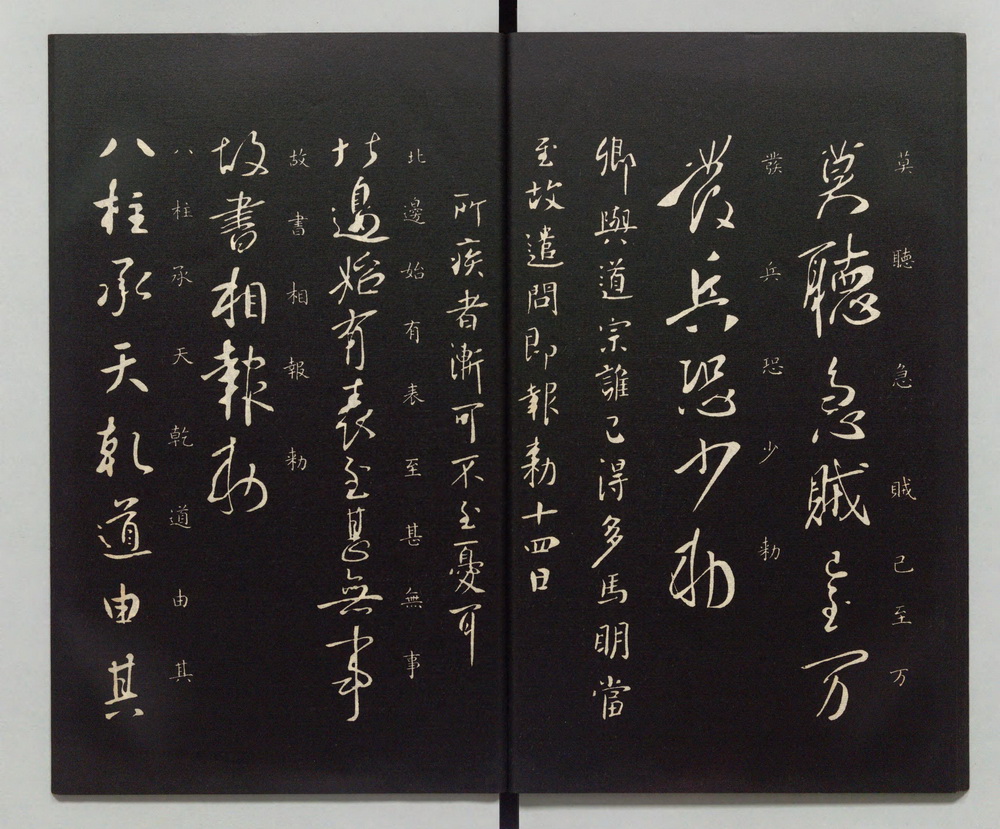 莫聽急賊已至万
莫聽急賊已至万
發兵恐少勅
發兵恐少勅
卿與道宗誰己得多馬明當
至故遣問即報勅十四日
所疾者漸可不至憂耳
北邊始有表至甚無事
北邊始有表至甚無事
故書相報勅
故書相報勅
八柱承天乾道由其
八柱承天乾道由其